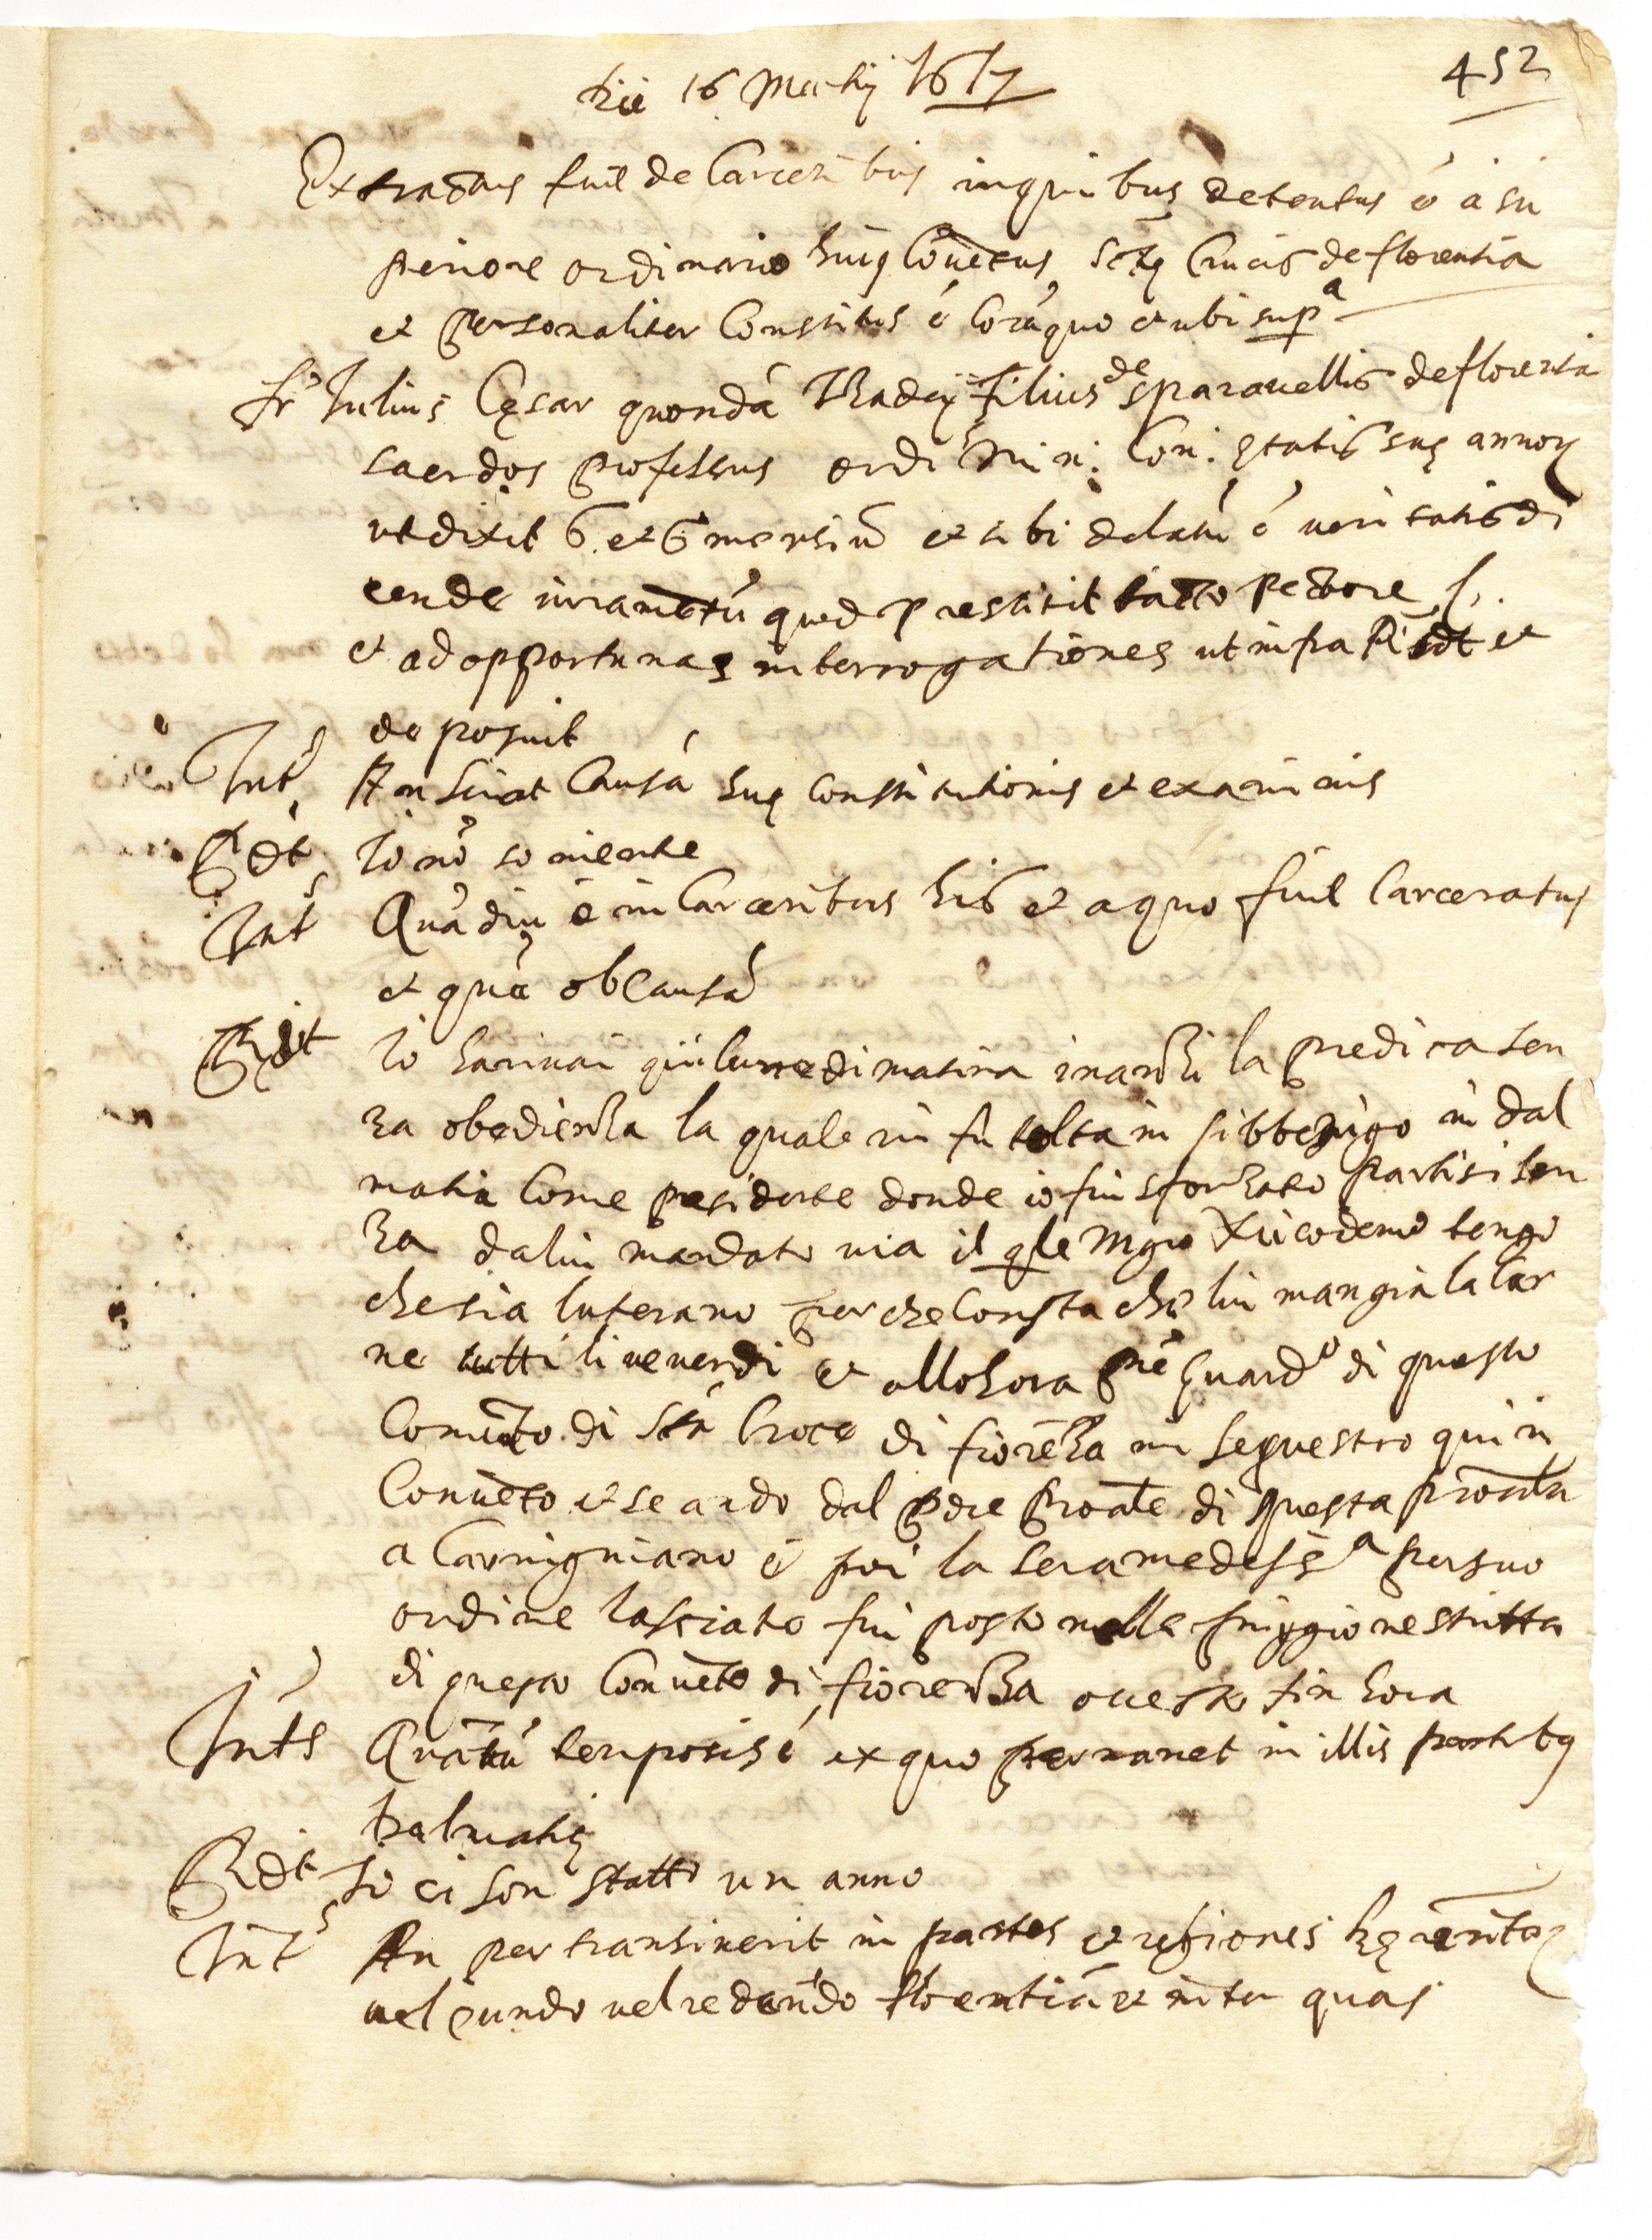 452
Die 16 Martij 1617
Extractus fuit de Carceribus in quibus detentus é à su
periore ordinario huiq Cōuētus Sctę Crucis de florentia
et personaliter Constitus é Corā quo et ubi supᵃ
frˀ Iulius Cęsar quondā Thadej filius de sparauellis de florentia
sacerdos professus ordˢ Min: Con: ętatis suę annoꝝ
ut dixit 6. et 6 mensiū et sibi delatū é ueritatis di
cendę iuramētū quod prestitit tacto pectore
et ad opportunas interrogationes ut infra Rˀdt et
deposuit
Intˢ An sciat Causā suę constitutionis et examinis
Rdt Io nō so niente
Intˢ Quādiu é in Carceribus his et a quo fuit Carceratus
et quā ob Causā
Rdt Io hariuai qui lunedi matina inanzi la predica sen
za obedienza la quale mi fu tolta in sibbenigo in Dal
matia Come presidente donde io fui sforzato partisi sen
za da lui mandato uia il qle Mgrο Nicodemo tengo
che sia luterano perche Consta che lui mangia la Car
ne tutti li uenerdi et allohora Pre Guardᵒ di questo
Conuēto di Stā Croce di fiorēza mi sequestro qui in
Conuēto et se ando dal Pdre Proale di questa Prouīa
a Carmigniano e poi la sera medesᵃ per suo
ordine lasciato fui posto nella priggione stritta
di questo Conuēto di fiorenza ouesto fin hora
Intˢ Quātū temporis é, ex quo permanet in illis partibq
Dalmatię
Rdt Io ci son statto un anno
Intˢ An pertransiuerit in partes et regiones hęreticoꝝ
uel eundo uel redeundo florentiā et inter quas